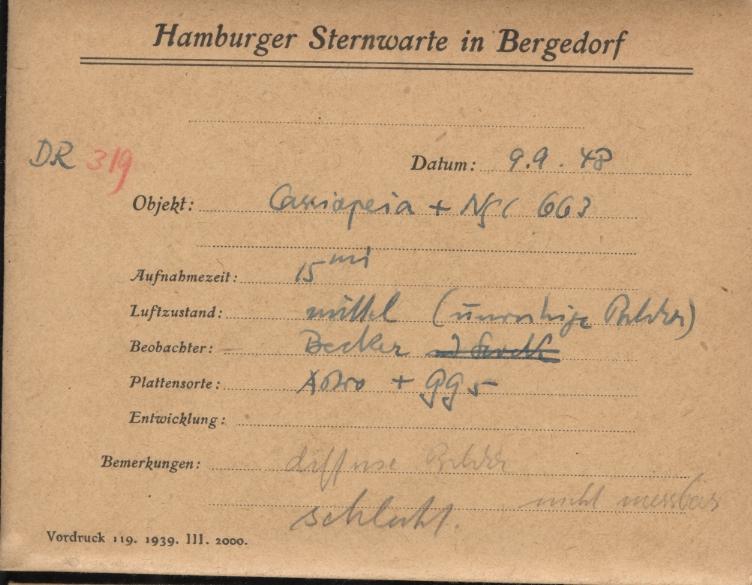 Hamburger Sternwarte in Bergedorf
DR 319
Datum: 9.9.48
Objekt: Cassiopeia + NGC 663
Aufnahmezeit: 15 min
Luftzustand: mittel (unruhige Bilder)
Beobachter: Becker
Plattensorte: Astro + GG5
Entwicklung:
Bemerkungen: diffuse Bilder
nicht messbar
schlecht.
Vordruck 119. 1939. III. 2000.